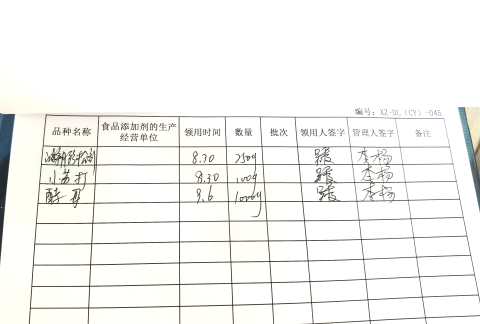 编号：XZ-DL（CY）-045
品种名称 食品添加剂的生产经营单位 领用时间 数量 批次 领用人签字 管理人签字 备注
8.30 250g 李杨
小苏打 8.30 100g 李杨
酵母 9.6 1000g 李杨